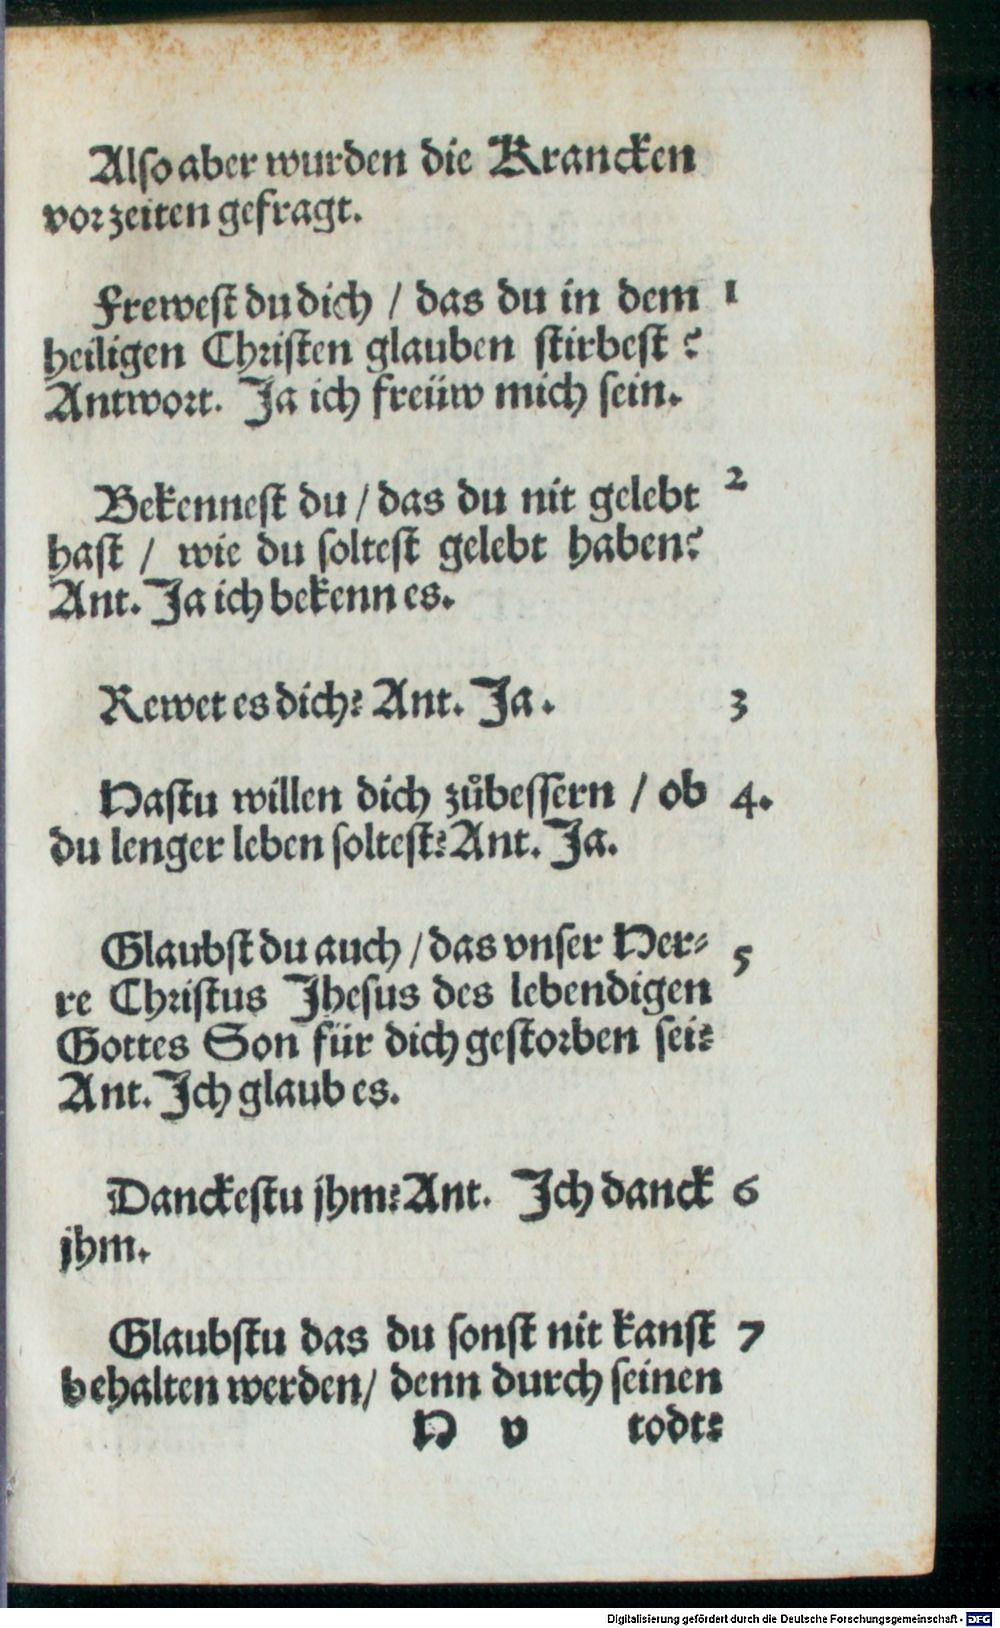 Also aber wurden die Krancken
vorzeiten gefragt.
Frewest du dich / das du in dem 1
heiligen Christen glauben stirbest?
Antwort. Ja ich freüw mich sein.
Bekennest du / das du nit gelebt 2
hast / wie du soltest gelebt haben?
Ant. Ja ich bekenn es.
Rewet es dich? Ant. Ja. 3
Hastu willen dich zůbessern / ob 4.
du lenger leben soltest? Ant. Ja.
Glaubst du auch / das vnser Her-
re Christus Jhesus des lebendigen 5
Gottes Son für dich gestorben sei?
Ant. Ich glaub es.
Danckestu jhm? Ant. Ich danck 6
jhm.
Glaubstu das du sonst nit kanst 7
behalten werden / denn durch seinen
H v todt?
Digitalisierung gefördert durch die Deutsche Forschungsgemeinschaft - DFG